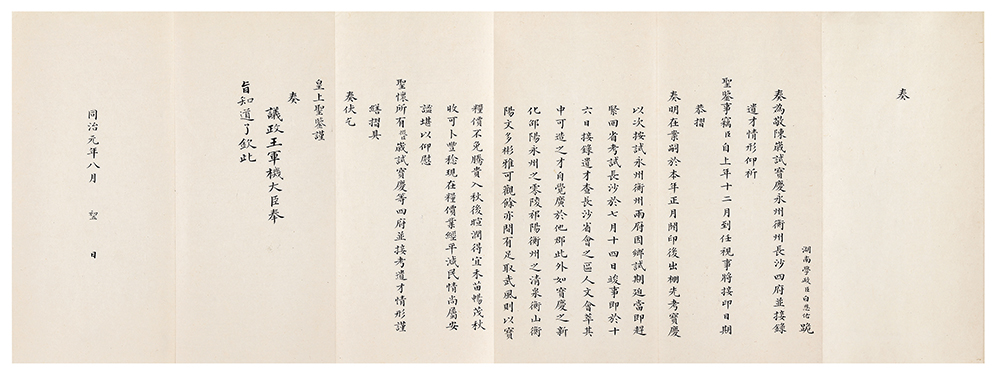 奏
湖南學政臣白恩佑跪
奏為敬陳歲試寶慶永州衡州長沙四府並接錄
遺才情形仰祈
聖鑒事竊臣自上年十二月到任視事將接印日期
恭摺
奏明在案嗣於本年正月開印後出棚先考寶慶
以次按試永州衡州兩府因鄉試期迫當即趕
緊回省考試長沙於七月十四日竣事即於十
六日接錄遺才查長沙省會之區人文會萃其
中可造之才自覺廣於他郡此外如寶慶之新
化邵陽永州之零陵祁陽衡州之清泉衡山衡
陽文多彬雅可觀餘亦間有足取武風則以寶
糧價不免騰貴入秋後暄潤得宜禾苗暢茂秋
收可卜豐稔現在糧價業經平減民情尚屬安
謐堪以仰慰
聖懷所有微臣歲試寶慶等四府並接考遺才情形謹
繕摺具
奏伏乞
皇上聖鑒謹
奏
議政王軍機大臣奉
旨知道了欽此
同治元年八月 日